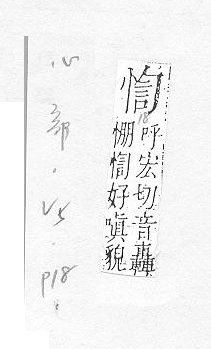 18
呼宏切音轟
㥊好嗔貌
心部. V5. p18